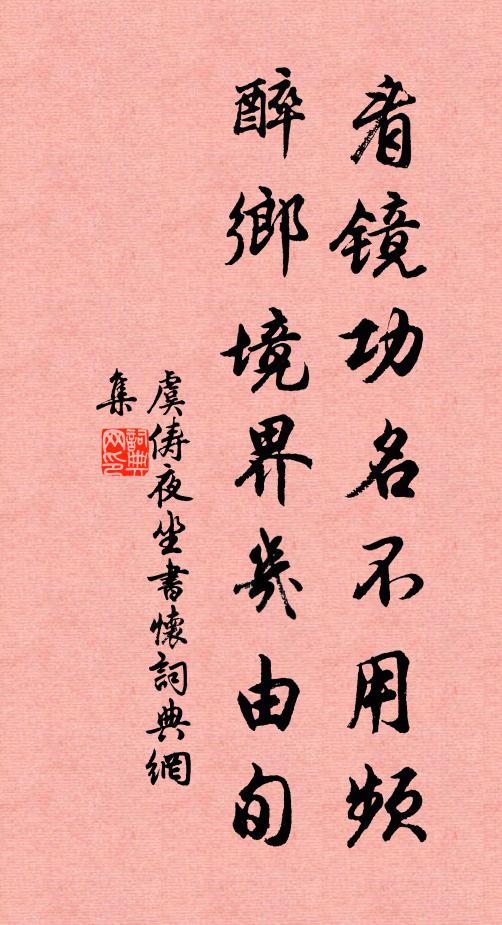 看镜功名不用频
醉鄉境界幾由旬
虞儔夜坐書懷詞典網
集
詞典
网印